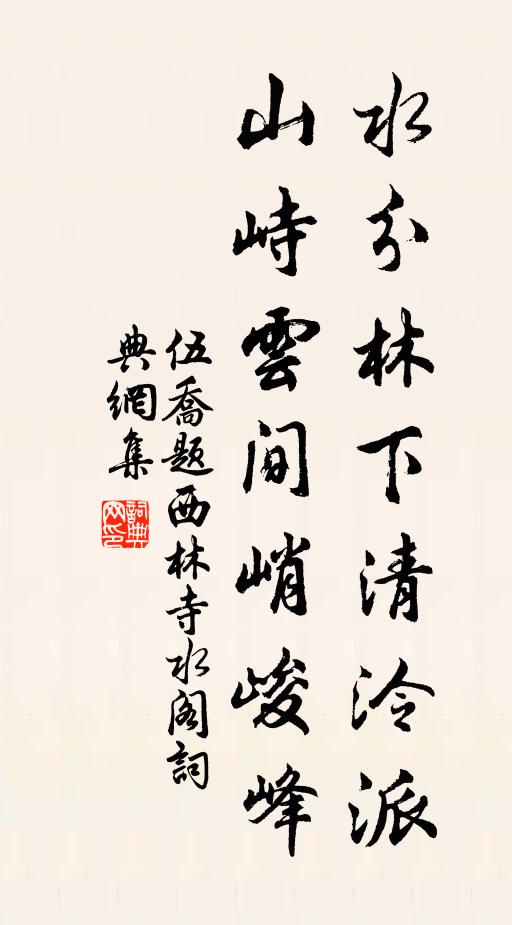 水分林下清泠派
山峙雲间峭峻峰
伍喬题西林寺水阁詞
典網集
詞典网印